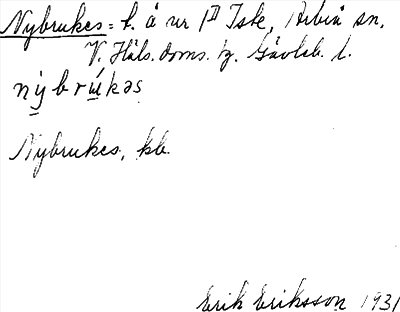 Nybrukes = h. å ur p1 Iste, Arbrå sn.
V. Häls. doms. bg. Gävleb. l.
nybrukəs
Nybrukes, kb.
Erik Eriksson 1931